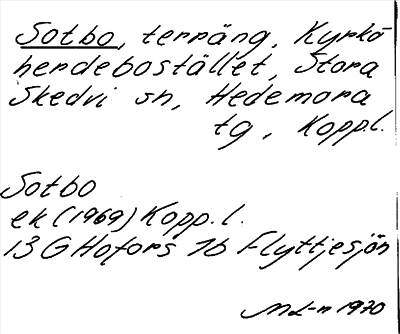 Sotbo, terräng, Kyrko
herdebostället, Stora
Skedvi sn, Hedemora
tg, Kopp.l.
Sotbo
ek (1969) Kopp.l.
13 G Hofors 1b Flyttjesjön
ML-n 1970